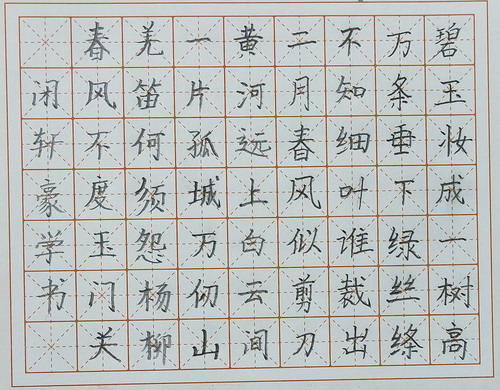 碧玉妆成一树高
万条垂下绿丝绦
不知细叶谁裁出
二月春风似剪刀
黄河远上白云间
一片孤城万仞山
羌笛何须怨杨柳
春风不度玉门关
轩豪学书